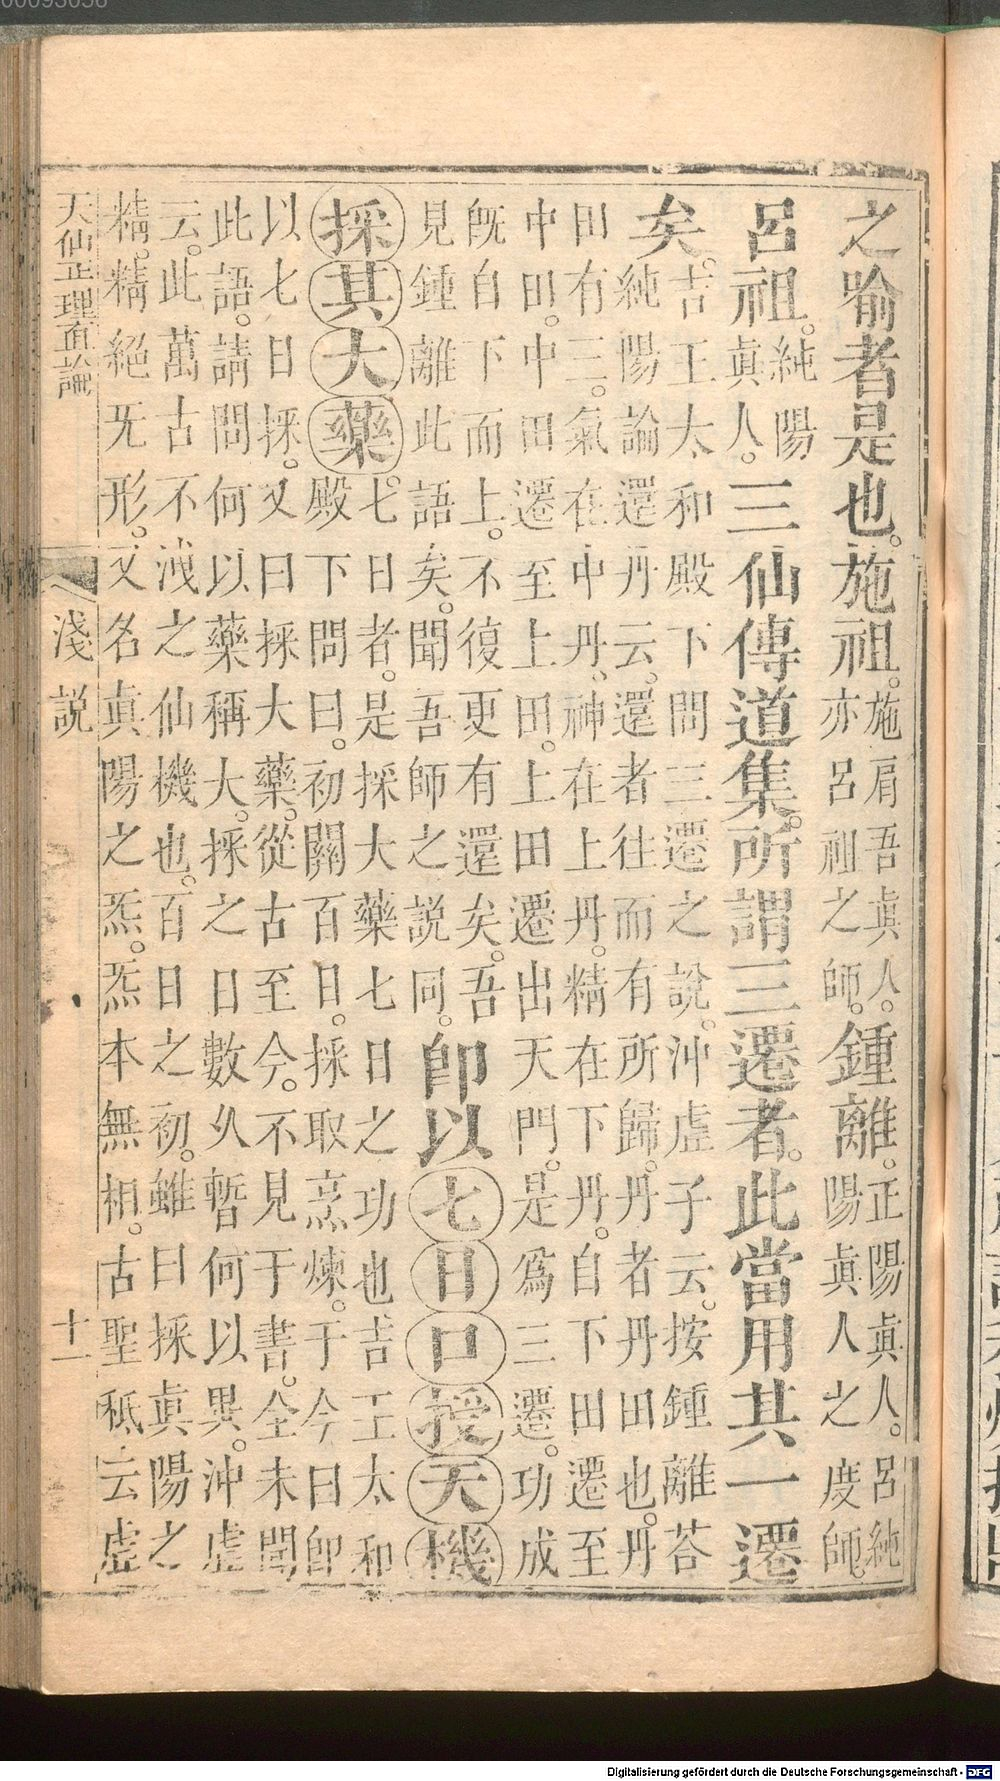 之喻者是也。施祖。施肩吾真人。亦呂祖之師。鍾離。正陽真人。呂純陽真人之度師。
呂祖。純陽真人。三仙傳道集。所謂三遷者。此當用其一遷
矣。吉王太和殿下問三遷之說。沖虛子云。按鍾離荅
純陽論還丹云。還者往而有所歸。丹者丹田也。丹
田有三。氣在中丹。神在上丹。精在下丹。自下田遷至
中田。中田遷至上田。上田遷出天門。是為三遷。功成
既自下而上。不復更有還矣。吾
見鍾離此語矣。聞吾師之説同。即以七日口授天機
採其大藥。七日者。是採大藥七日之功也吉王太和
殿下問曰。初關百日。採取烹煉。于今曰即
以七日採。又曰採大藥。從古至今。不見于書。全未聞
此語。請問何以藥稱大。採之日數久暫何以異。沖虛
云。此萬古不洩之仙機也。百日之初。雖曰採真陽之
精。精絕无形。又名真陽之炁。炁本無相。古聖秪云虛
天仙正理直論 淺説 十一
Digitalisierung gefördert durch die Deutsche Forschungsgemeinschaft - DFG